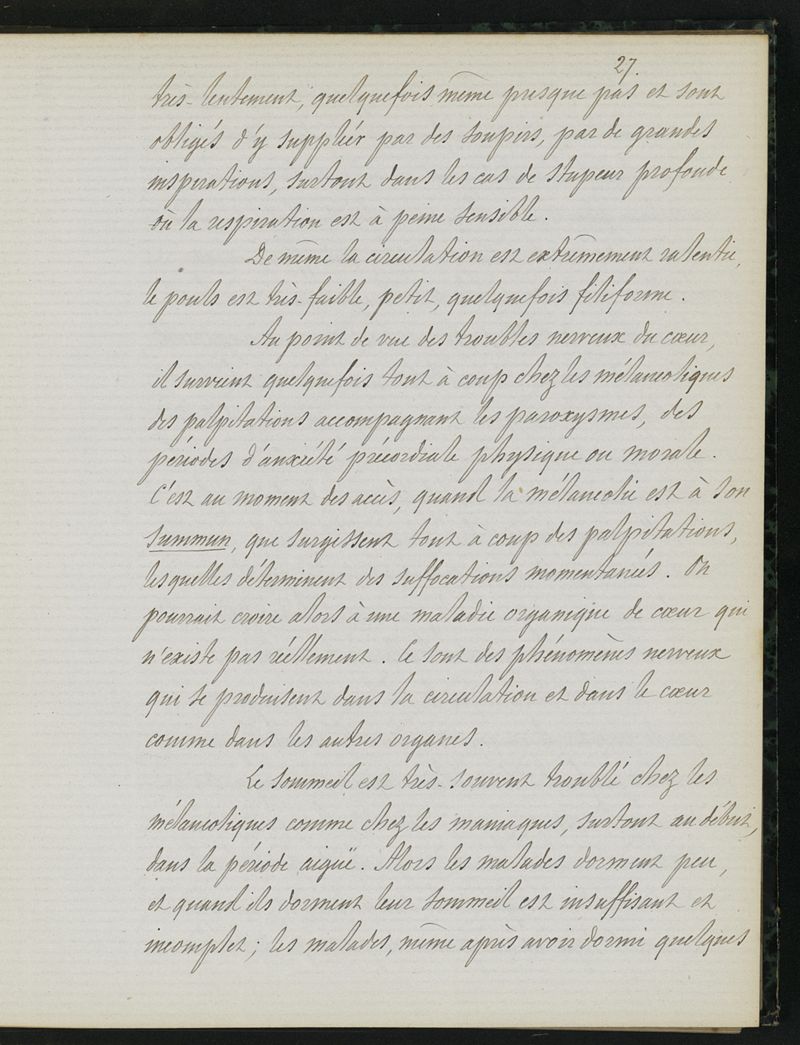 27.
très-lentement, quelquefois même presque pas et sont
obligés d'y suppléer par des soupirs, par de grandes
inspirations, surtout dans les cas de stupeur profonde
où la respiration est à peine sensible.
De même la circulation est extrêmement ralentie,
le pouls est très-faible, petit, quelquefois filiforme.
Au point de vue des troubles nerveux du cœur,
il survient quelquefois tout à coup chez les mélancoliques
des palpitations accompagnant les paroxysmes, des
périodes d'anxiété précordiale physique ou morale.
C'est au moment des accès, quand la mélancolie est à son
summum, que surgissent tout à coup des palpitations,
lesquelles déterminent des suffocations momentanées. On
pourrait croire alors à une maladie organique de cœur qui
n'existe pas réellement. Ce sont des phénomènes nerveux
qui se produisent dans la circulation et dans le cœur
comme dans les autres organes.
Le sommeil est très-souvent troublé chez les
mélancoliques comme chez les maniaques, surtout au début,
dans la période aigüe. Alors les malades dorment peu,
et quand ils dorment leur sommeil est insuffisant et
incomplet; les malades, même après avoir dormi quelques